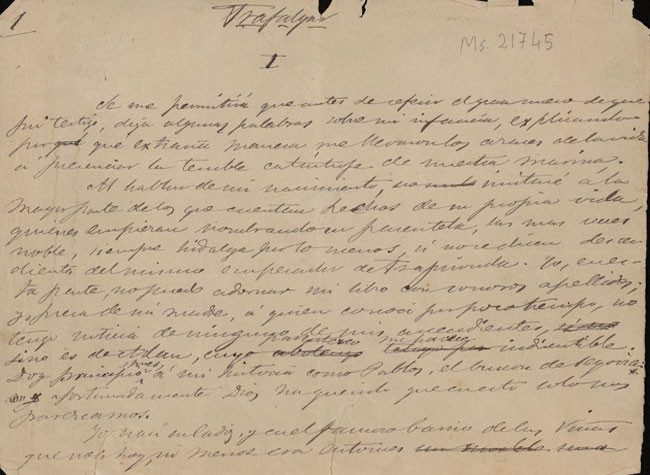 1
Trafalgar
Ms. 21745
I
Se me permitirá que antes de referir el gran suceso de que
fui testigo, diga algunas palabras sobre mi infancia, explicando
por qué extraña manera me llevaron los azares de la vida
á presenciar la terrible catástrofe de nuestra marina.
Al hablar de mi nacimiento, no imitaré á la
mayor parte de los que cuentan hechos de su propia vida,
quienes empiezan nombrando su parentela, las mas veces
noble, siempre hidalga por lo menos, si no se dicen descen
dientes del mismo emperador de Trapisonda. Yo, en es-
ta parte, no puedo adornar mi libro con sonoros apellidos;
y fuera de mi madre, á quien conocí por poco tiempo, no
tengo noticia de ninguno de mis ascendientes,
sino es de Adan, cuyo parentesco me parece indiscutible.
Doy principio pues á mi historia como Pablos, el buscon de Segovia:
afortunadamente Dios ha querido que en esto solo nos
parezcamos.
Yo nací en Cadiz, y en el famoso barrio de la Viña
que no es hoy, ni menos era entonces